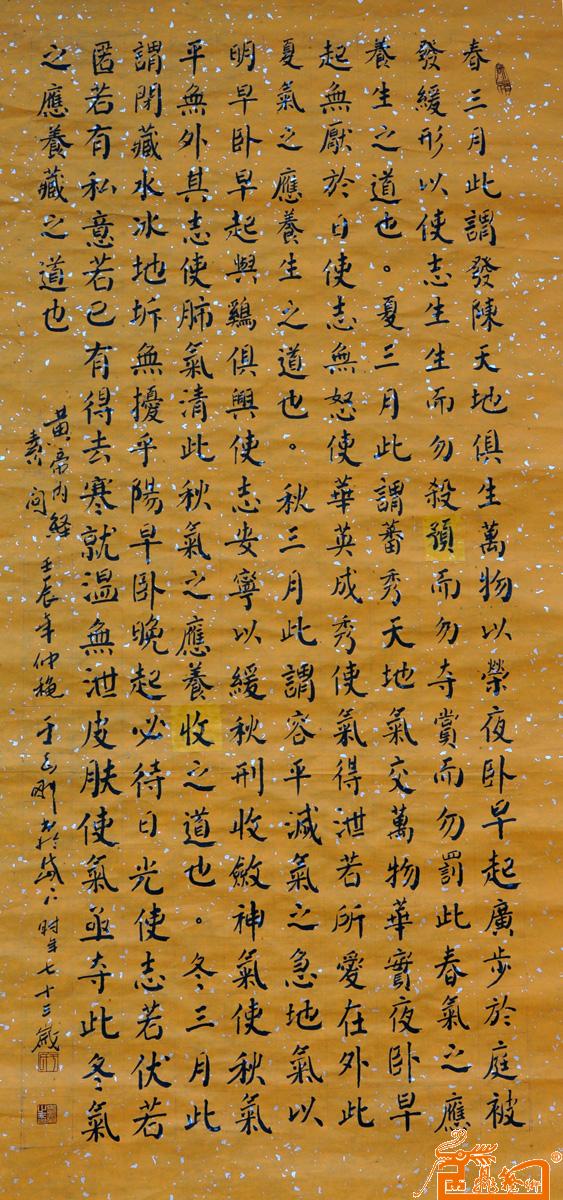 春三月此謂發陳天地俱生萬物以榮夜卧早起廣步於庭被
發緩形以使志生生而勿殺預而勿夺賞而勿罰此春氣之應
養生之道也。夏三月此謂蕃秀天地氣交萬物華實夜卧早
起無厭於日使志無怒使華英成秀使氣得泄若所愛在外此
夏氣之應養生之道也。秋三月此謂容平減氣之急地氣以
明早卧早起與鷄俱興使志安寧以緩秋刑收斂神氣使秋氣
平無外其志使肺氣清此秋氣之應養收之道也。冬三月此
謂閉藏水冰地坼無擾乎陽早卧晚起必待日光使志若伏若
匿若有私意若已有得去寒就溫無泄皮肤使氣亟夺此冬氣
之應養藏之道也
黄帝内経
素问
壬辰年仲穐 王 书於 时年七十三歲